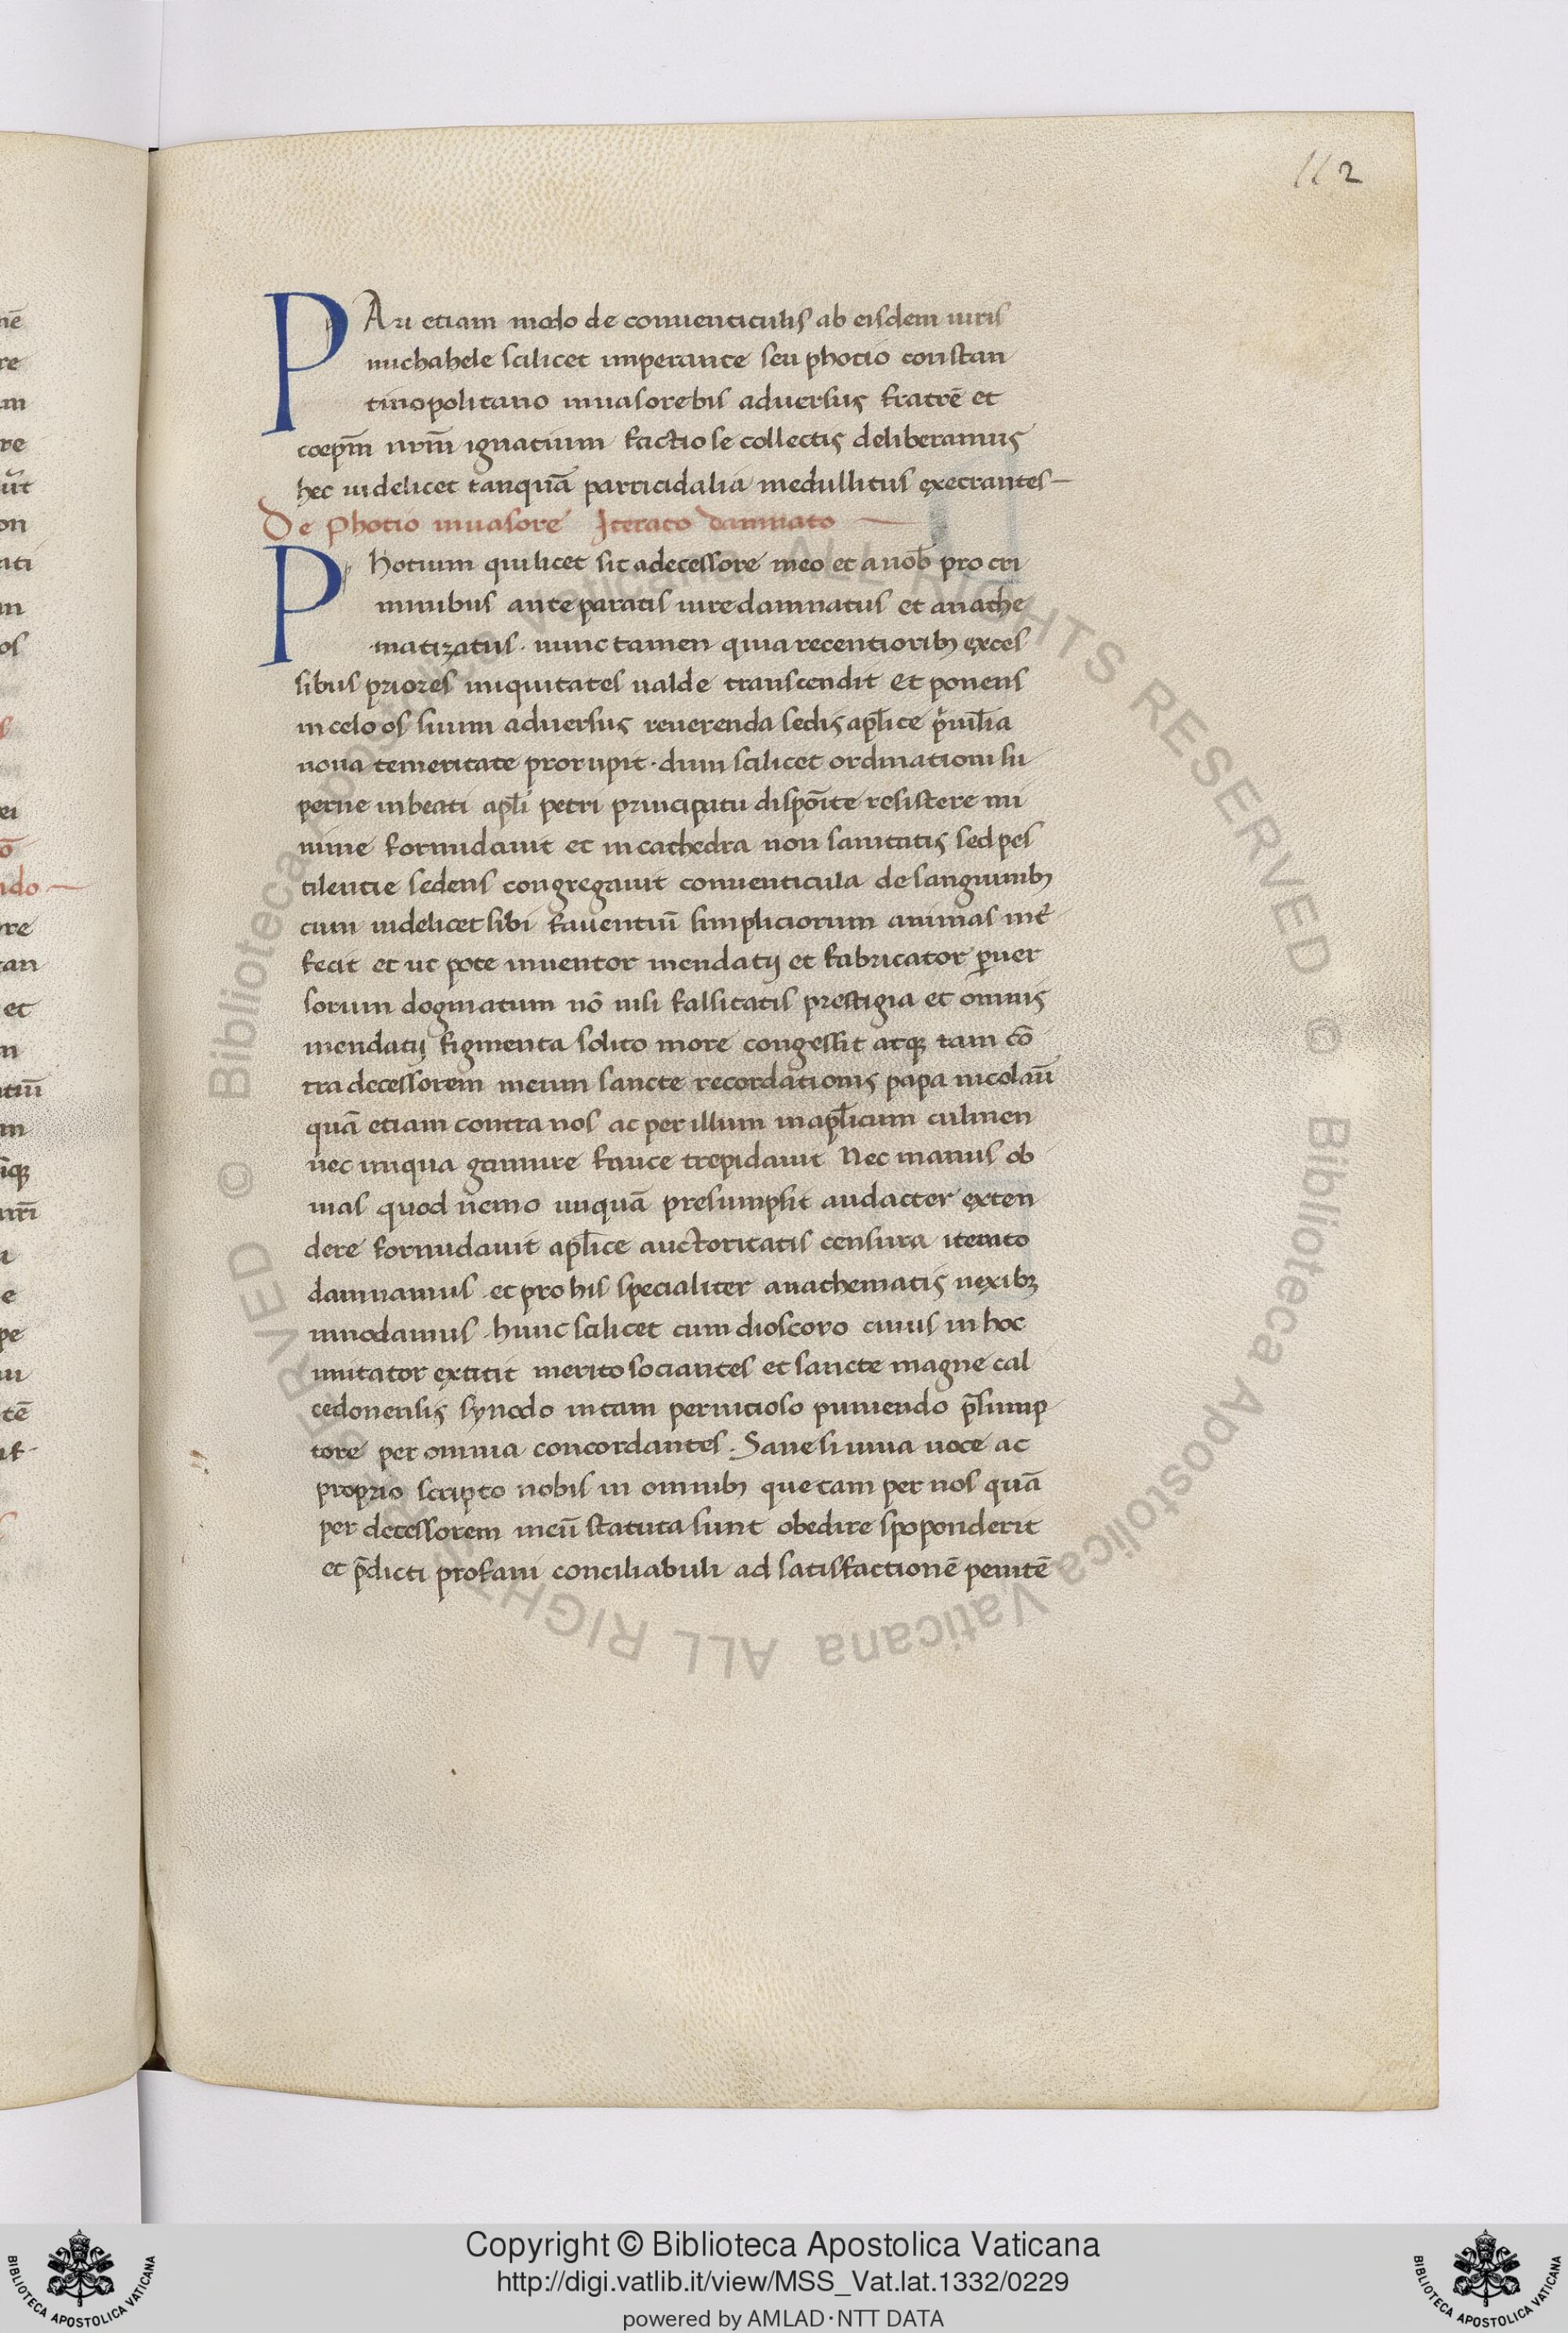 112
PAri etiam modo de conuenticulis ab eisdem uiris
michahele scilicet imperante seu photio constan
tinopolitano inuasore bis aduersus fratrē et
coep̄m nr̄m ignatium factiose collectis deliberamus
hec uidelicet tanquā parricidalia medullitus execrantes
De Photio inuasore Iterato damnato
Photium qui licet sit adecessore meo et a nob̄ pro cri
minibus ante paratis iure damnatus et anathe
matizatus · nunc tamen quia recentioribꝫ exces
sibus priores iniquitates ualde transcendit Et ponens
in celo os suum aduersus reuerenda sedis apl̄ice pͥuil̄ia
noua temeritate prorupit · dum scilicet ordinationi su
perne in beati apl̄i petri principatu dispōite resistere mi
nime formidauit et in cathedra non sanitatis sed pes
tilentie sedens congregauit conuenticula de sanguinibꝫ
cum uidelicet sibi fauentiū simpliciorum animas int̓
fecit et ut pote inuentor mendatij et fabricator ꝑuer
sorum dogmatum nō nisi falsitatis prestigia et omnis
mendatij figmenta solito more congessit atqꝫ tam cō
tra decessorem meum sancte recordationis papa nicolaū
quā etiam contra nos ac per illum in apl̄icum culmen
nec iniqua gannire fauce trepidauit Nec manus ob
uias quod nemo unquā presumpsit audacter exten
dere formidauit apl̄ice auctoritatis censura iterato
damnamus · et pro his specialiter anathematis nexibꝫ
innodamus · hunc scilicet cum dioscoro cuius in hoc
imitator extitit merito sociantes et sancte magne cal
cedonensis synodo in tam pernicioso puniendo p̄sump
tore per omnia concordantes . Sane si uiua uoce ac
proprio scripto nobis in omnibꝫ que tam per nos quā
per decessorem meū statuta sunt obedire spoponderit
et p̄dicti profani conciliabuli ad satisfactionē penitē
© Biblioteca Apostolica Vaticana ALL RIGHTS RESERVED © Biblioteca Apostolica Vaticana ALL RIGHTS RESERVED
Copyright © Biblioteca Apostolica Vaticana
http://digi.vatlib.it/view/MSS_Vat.lat.1332/0229
powered by AMLAD·NTT DATA
BIBLIOTECA APOSTOLICA VATICANA
BIBLIOTECA APOSTOLICA VATICANA